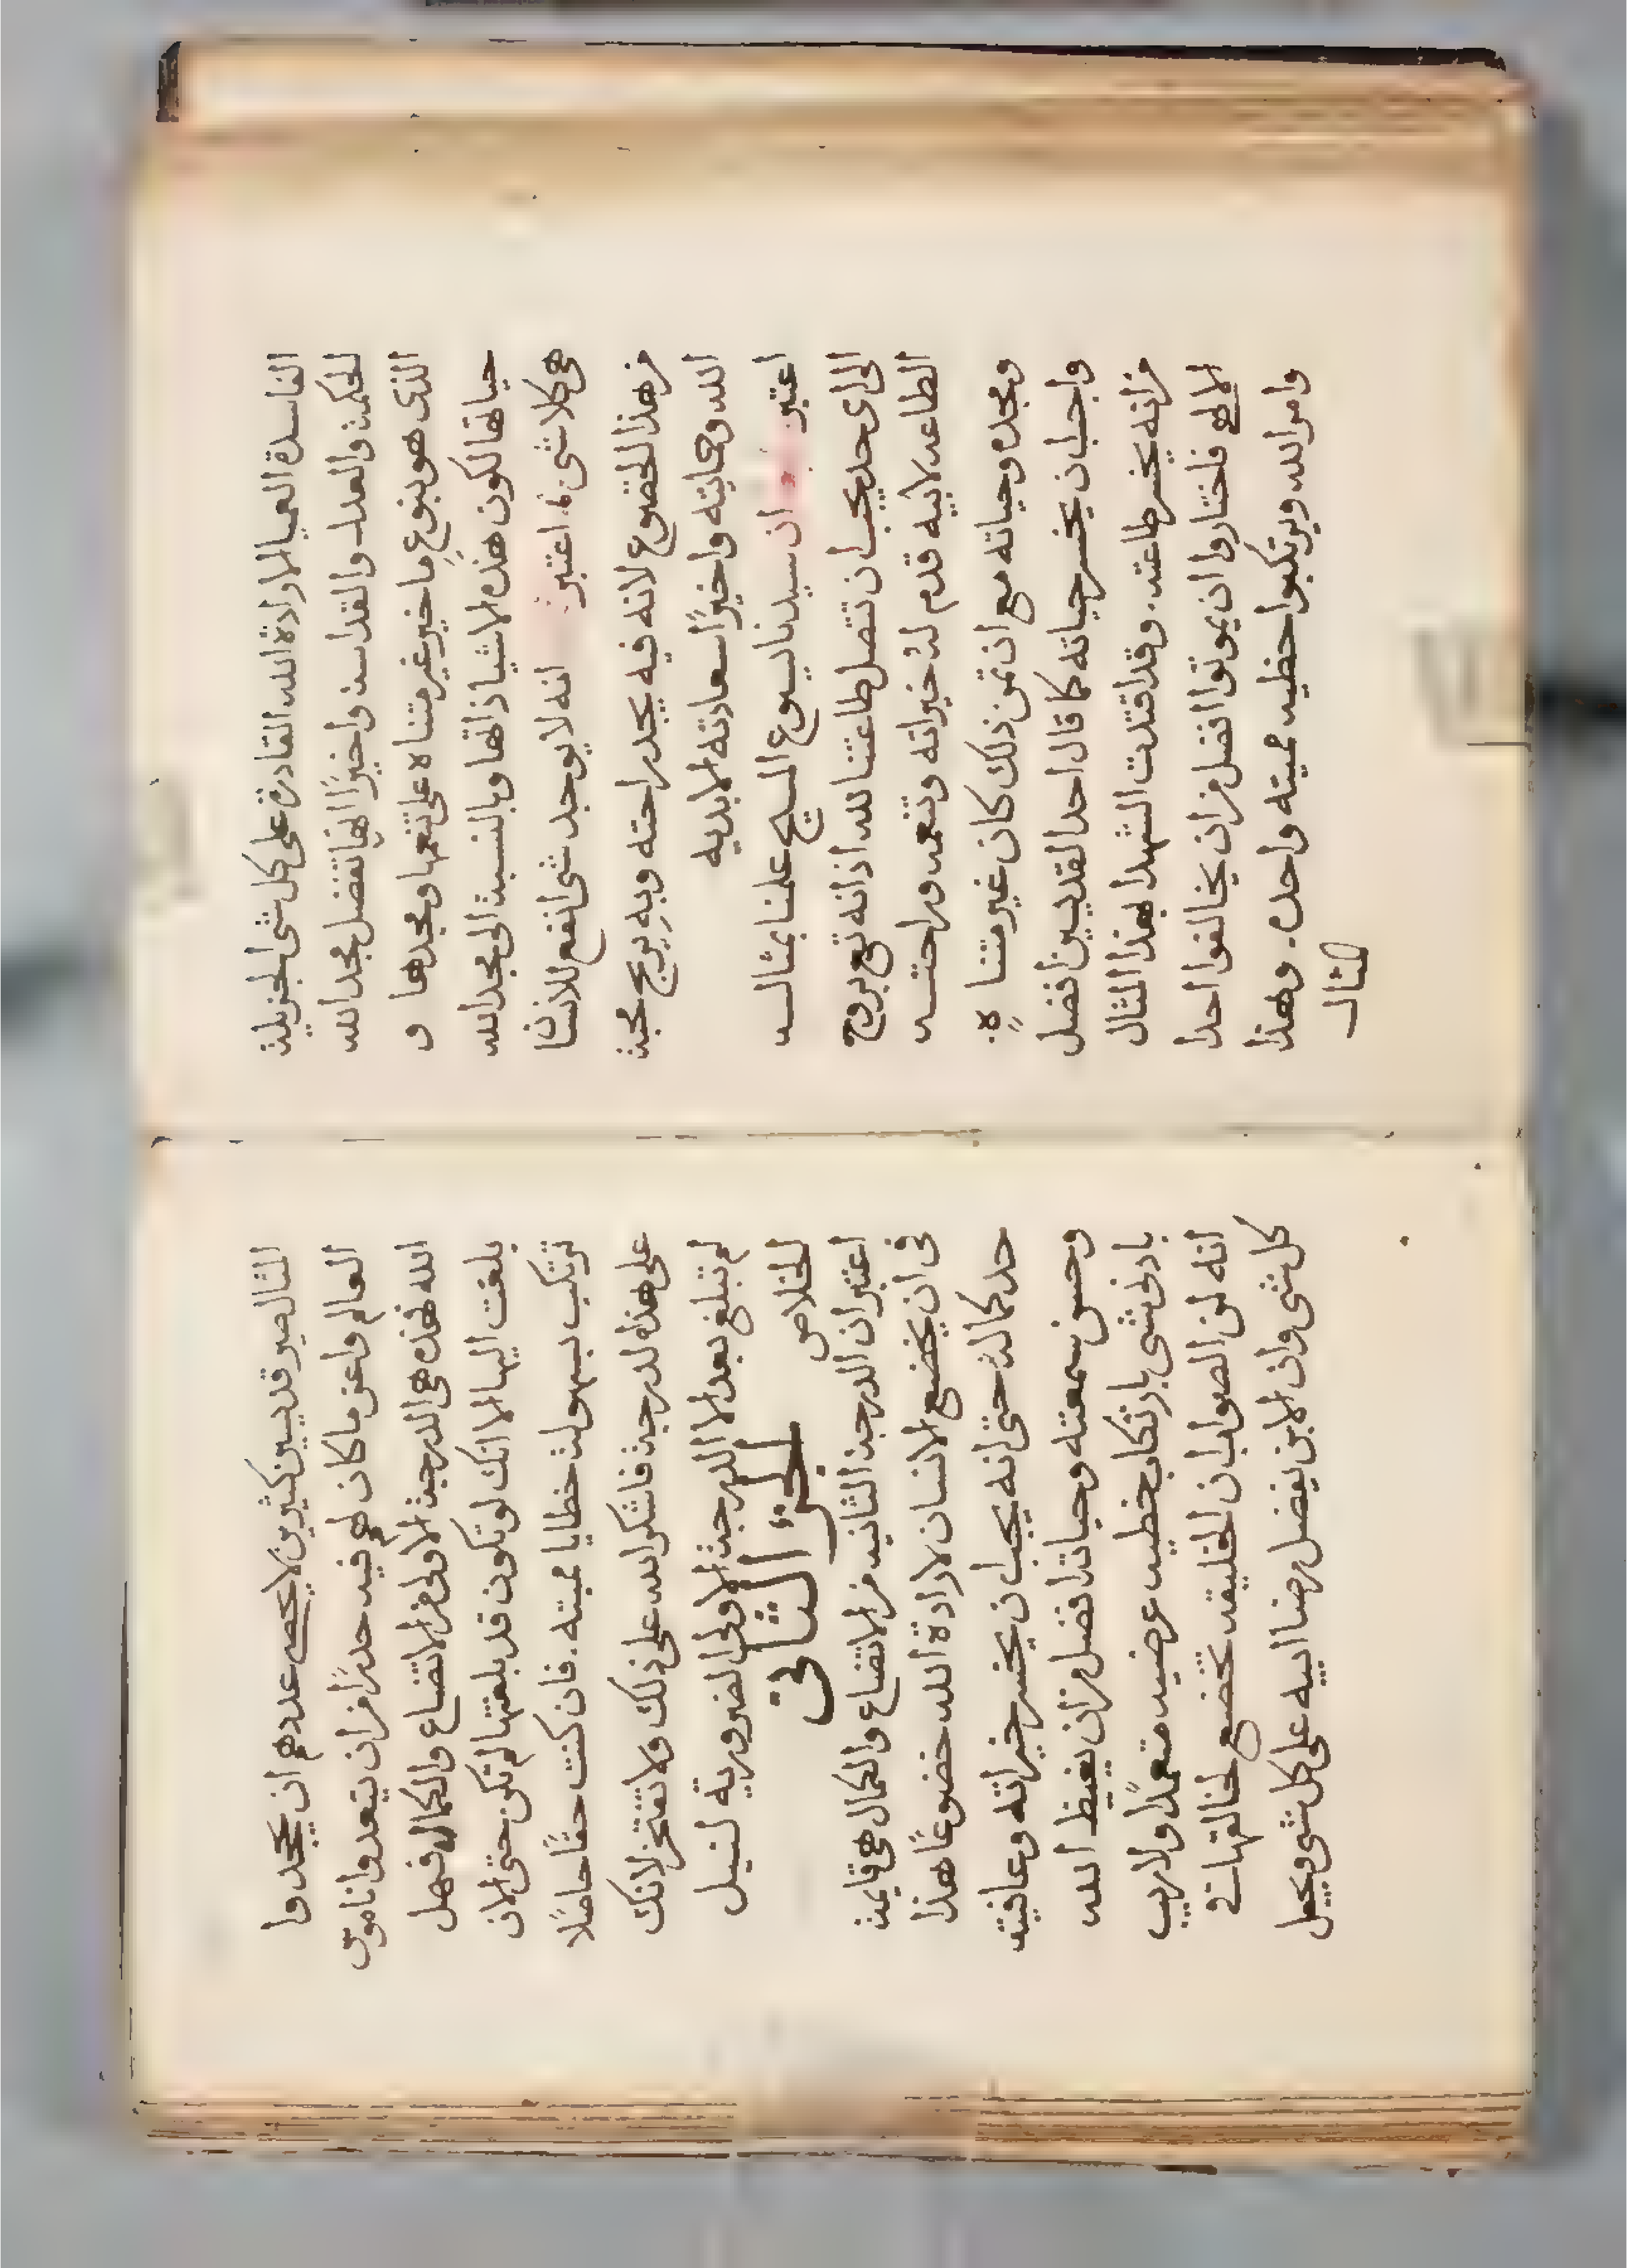 الفاسدة العميا لارادة الله القادرة على كل شى الجزيلة
الحكمة والعدل والقداسة واخيرًا انها تفضل مجد الله
الذى هو بنوعٍ ما خير غير متناه على تنعمها ومجدها و
حياتها لكون هذه الاشيا ذاتها وبالنسبة الى مجد الله
هى كلا شى، اعتبر انه لا يوجد شى انفع للانسان
من هذا الخضوع لانه فيه يجد راحته وبهِ يربح محبة
الله وحمايته واخيرًا سعادته الابديه
اعتبر ان سيدنا يسوع المسيح علمنا بمثاله
الى اى حد يجب ان تتصل طاعتنا لله اذ انه تع بروح
الطاعه لابيه قدم لهُ خيراته وتنعمه وراحته
ومجده وحياته مع ان ثمن ذلك كان غير متنا
هٍ.
واجب ان يخسر حياته كما قال احد القديسين افضل
من انه يخسر طاعته. وقد اقتدت الشهدا بهذا المثال
الالهى فاختاروا ان يموتوا افضل من ان يخالفوا احدا
وامر الله ويرتكبوا خطيه مميته واحده. وهذا
المثال
المثال صير قديسين كثيرين لا يحصى عددهم ان يجحدوا
العالم واعز ما كان لهم فيه حذرًا من ان يتعدوا ناموس
الله فهذه هى الدرجة الاولى من الاتضاع والكمال فهل
بلغت اليها الا انك لو تكون قد بلغتها لم تكن حتى الان
ترتكب بسهولة خطايا مميته. فان كنت حقًا حاصلا
على هذه الدرجة فاشكر الله على ذلك ولا تفتخر لانك
لم تبلغ بعد الا الدرجة الاولى الضرورية لنيل
الخلاص
الجزء الثانى
اعتبر ان الدرجة الثانيه من الاتضاع والكمال هى قايمة
فى ان يخضع الانسان لارادة الله خضوعًا هذا
حد كماله حتى انه يجب ان يخسر خيراته وعافيته
وحسن سمعته وحياته افضل من ان يغيظ الله
بادنى شى بارتكاب خطيه عرضيه متعمدًا ولا ريب
انه لمن الصواب ان الخليقه تخضع لخالقها فى
كل شى وان الابن يفضل رضا ابيه على كل شى ويجعل